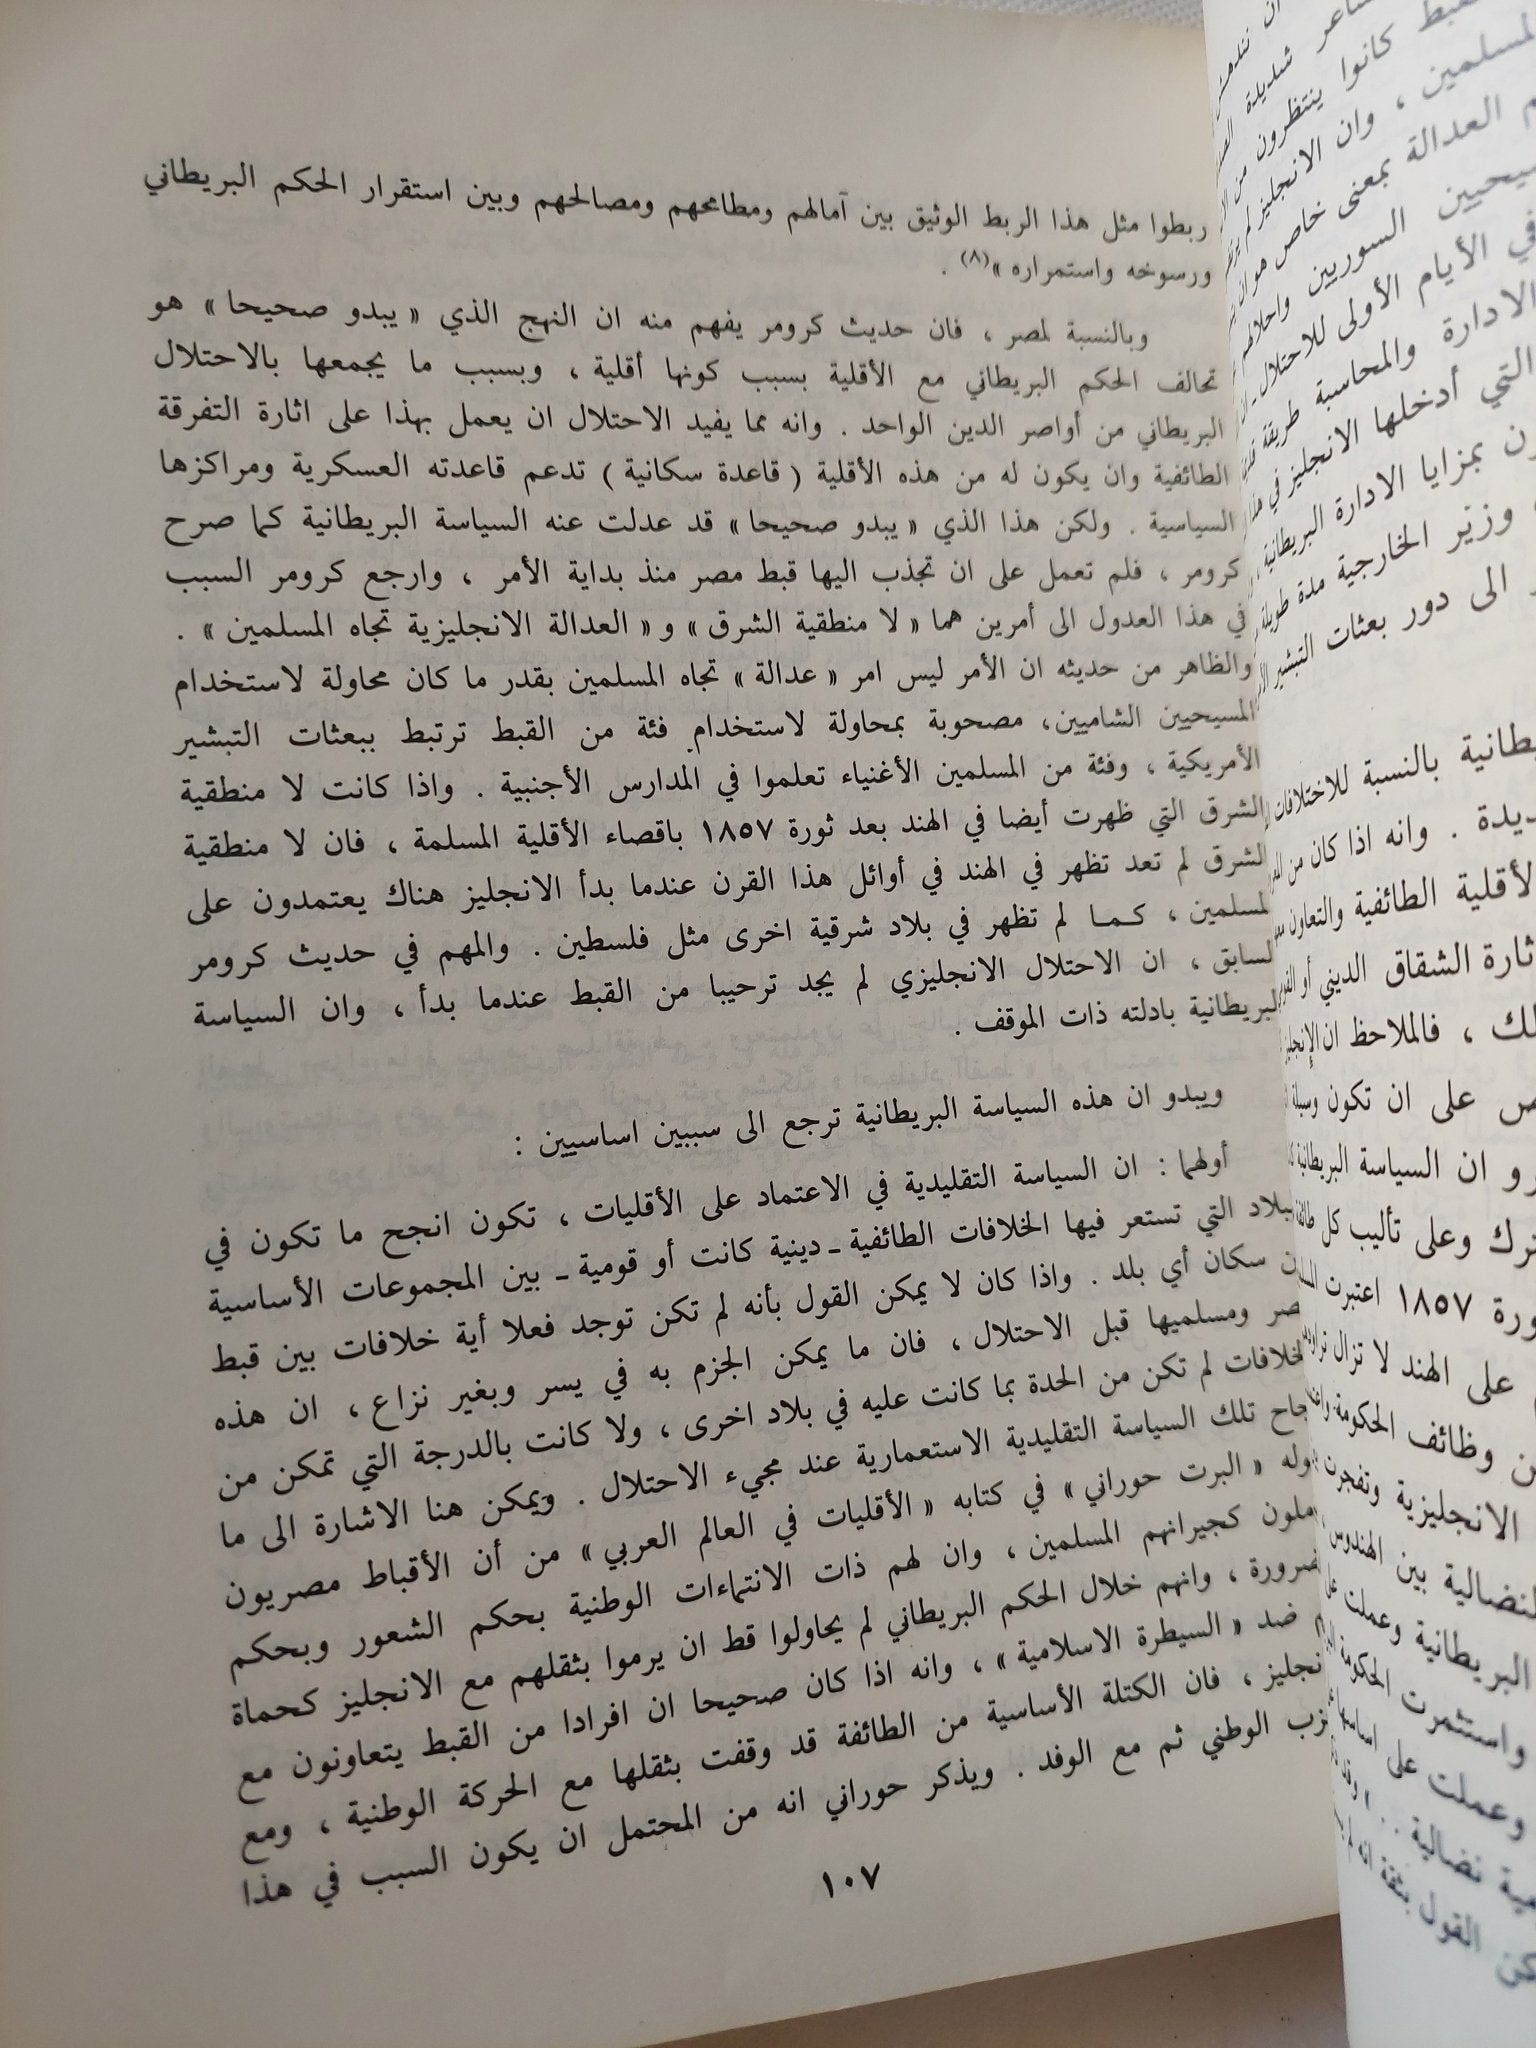 ربطوا مثل هذا الربط الوثيق بين آمالهم ومطامحهم ومصالحهم وبين استقرار الحكم البريطاني
ورسوخه واستمراره »(٨) .
وبالنسبة لمصر ، فان حديث كرومر يفهم منه ان النهج الذي « يبدو صحيحا » هو
تحالف الحكم البريطاني مع الأقلية بسبب كونها أقلية ، وبسبب ما يجمعها بالاحتلال
البريطاني من أواصر الدين الواحد . وانه مما يفيد الاحتلال ان يعمل بهذا على اثارة التفرقة
الطائفية وان يكون له من هذه الأقلية ( قاعدة سكانية ) تدعم قاعدته العسكرية ومراكزها
السياسية . ولكن هذا الذي « يبدو صحيحا » قد عدلت عنه السياسة البريطانية كما صرح
كرومر ، فلم تعمل على ان تجذب اليها قبط مصر منذ بداية الأمر ، وارجع كرومر السبب
في هذا العدول الى أمرين هما « لا منطقية الشرق » و « العدالة الانجليزية تجاه المسلمين » .
والظاهر من حديثه ان الأمر ليس امر « عدالة » تجاه المسلمين بقدر ما كان محاولة لاستخدام
المسيحيين الشاميين، مصحوبة بمحاولة لاستخدام فئة من القبط ترتبط ببعثات التبشير
الأمريكية ، وفئة من المسلمين الأغنياء تعلموا في المدارس الأجنبية . واذا كانت لا منطقية
الشرق التي ظهرت أيضا في الهند بعد ثورة ١٨٥٧ باقصاء الأقلية المسلمة ، فان لا منطقية
الشرق لم تعد تظهر في الهند في أوائل هذا القرن عندما بدأ الانجليز هناك يعتمدون على
المسلمين ، كما لم تظهر في بلاد شرقية اخرى مثل فلسطين . والمهم في حديث كرومر
السابق ، ان الاحتلال الانجليزي لم يجد ترحيبا من القبط عندما بدأ ، وان السياسة
البريطانية بادلته ذات الموقف .
ويبدو ان هذه السياسة البريطانية ترجع الى سببين اساسيين :
أولهما : ان السياسة التقليدية في الاعتماد على الأقليات ، تكون انجح ما تكون في
التي تستعر فيها الخلافات الطائفية ـ دينية كانت أو قومية ـ بين المجموعات الأساسية
سكان أي بلد . واذا كان لا يمكن القول بأنه لم تكن توجد فعلا أية خلافات بين قبط
ومسلميها قبل الاحتلال ، فان ما يمكن الجزم به في يسر وبغير نزاع ، ان هذه
الخلافات لم تكن من الحدة بما كانت عليه في بلاد اخرى ، ولا كانت بالدرجة التي تمكن من
تلك السياسة التقليدية الاستعمارية عند مجيء الاحتلال . ويمكن هنا الاشارة الى ما
« البرت حوراني » في كتابه « الأقليات في العالم العربي » من أن الأقباط مصريون
كجيرانهم المسلمين ، وان لهم ذات الانتماءات الوطنية بحكم الشعور وبحكم
، وانهم خلال الحكم البريطاني لم يحاولوا قط ان يرموا بثقلهم مع الانجليز كحماة
ضد « السيطرة الاسلامية » ، وانه اذا كان صحيحا ان افرادا من القبط يتعاونون مع
، فان الكتلة الأساسية من الطائفة قد وقفت بثقلها مع الحركة الوطنية ، ومع
الوطني ثم مع الوفد . ويذكر حوراني انه من المحتمل ان يكون السبب في هذا
١٠٧
كانوا ينتظرون من
المسلمين ، وان الانجليز لم
العدالة بمعنى خاص هو ان
السوريين
في الأيام الأولى للاحتلال
الادارة والمحاسبة طريقة
التي أدخلها الانجليز في
بمزايا الادارة البريطانية
وزير الخارجية مدة طويلة
الى دور بعثات التبشير
بالنسبة للاختلافات
. وانه اذا كان من
الأقلية الطائفية والتعاون
الشقاق الديني أو
، فالملاحظ ان الإنجليز
على ان تكون وسيلة
ان السياسة البريطانية
وعلى تأليب كل
١٨٥٧ اعتبرت
على الهند لا تزال
وظائف الحكومة
الانجليزية وتفجرت
بين الهندوس
البريطانية وعملت
واستثمرت الحكومة
وعملت على
نضالية . . »
القول بثقة انه لم